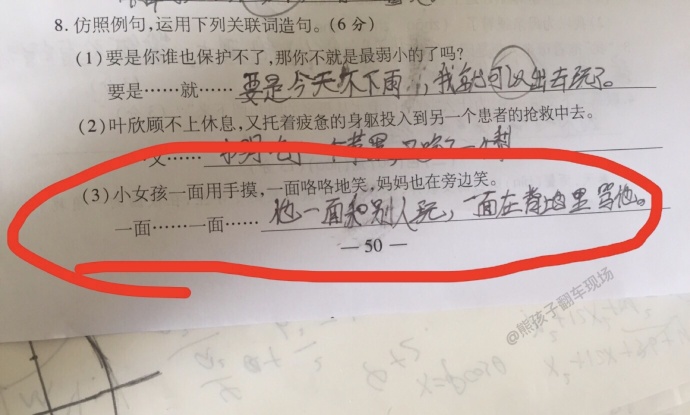 8. 仿照例句,运用下列关联词造句。(6分)
(1)要是你谁也保护不了,那你不就是最弱小的了吗?
要是……就…… 要是今天不下雨,我就可以出去玩了。
(2)叶欣顾不上休息,又托着疲惫的身躯投入到另一个患者的抢救中去。
又…… 一个苹果,又吃了一个梨
(3)小女孩一面用手摸,一面咯咯地笑,妈妈也在旁边笑。
一面……一面…… 他一面和别人玩,一面在背地里骂他。
— 50 —
@熊孩子翻车现场